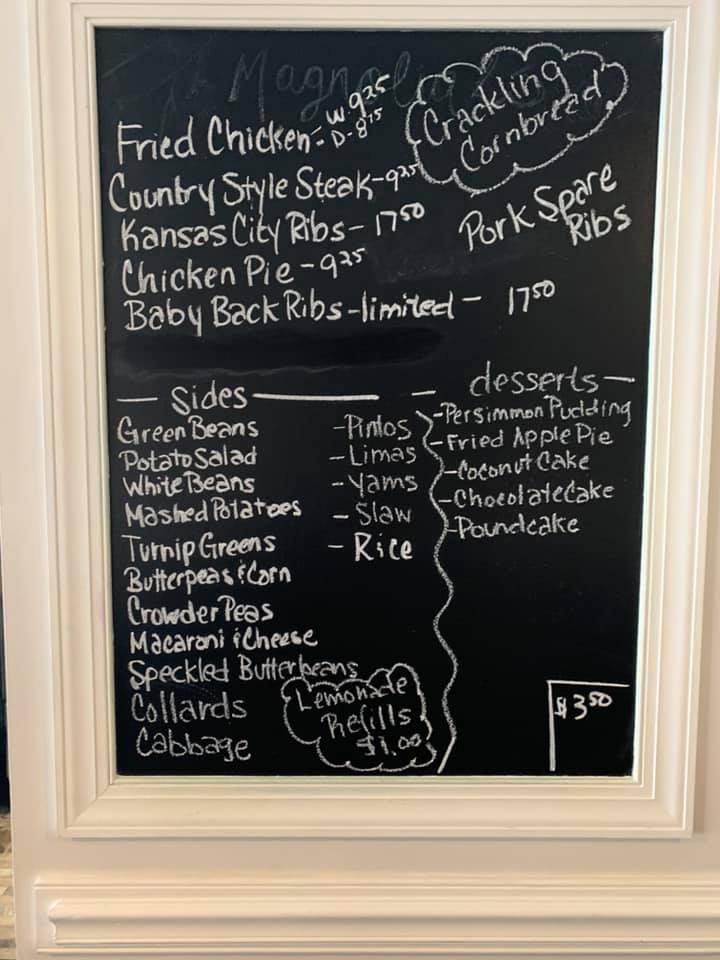 Magnolia
Fried Chicken - W-9.25
D-8.75
Country Style Steak-9.25
Kansas City Ribs- 17.50
Chicken Pie -9.25
Baby Back Ribs-limited- 17.50
Crackling
Cornbread
Pork Spare
Ribs
Sides
Green Beans
Potato Salad
White Beans
Mashed Potatoes
Turnip Greens
Butterpeas & Corn
Crowder Peas
Macaroni & Cheese
Speckled Butterbeans
Collards
Cabbage
-Pintos
-Limas
-Yams
-Slaw
-Rice
Lemonade
Refills
$1.00
desserts
-Persimmon Pudding
-Fried Apple Pie
-Coconut Cake
-Chocolate Cake
-Poundcake
$3.50